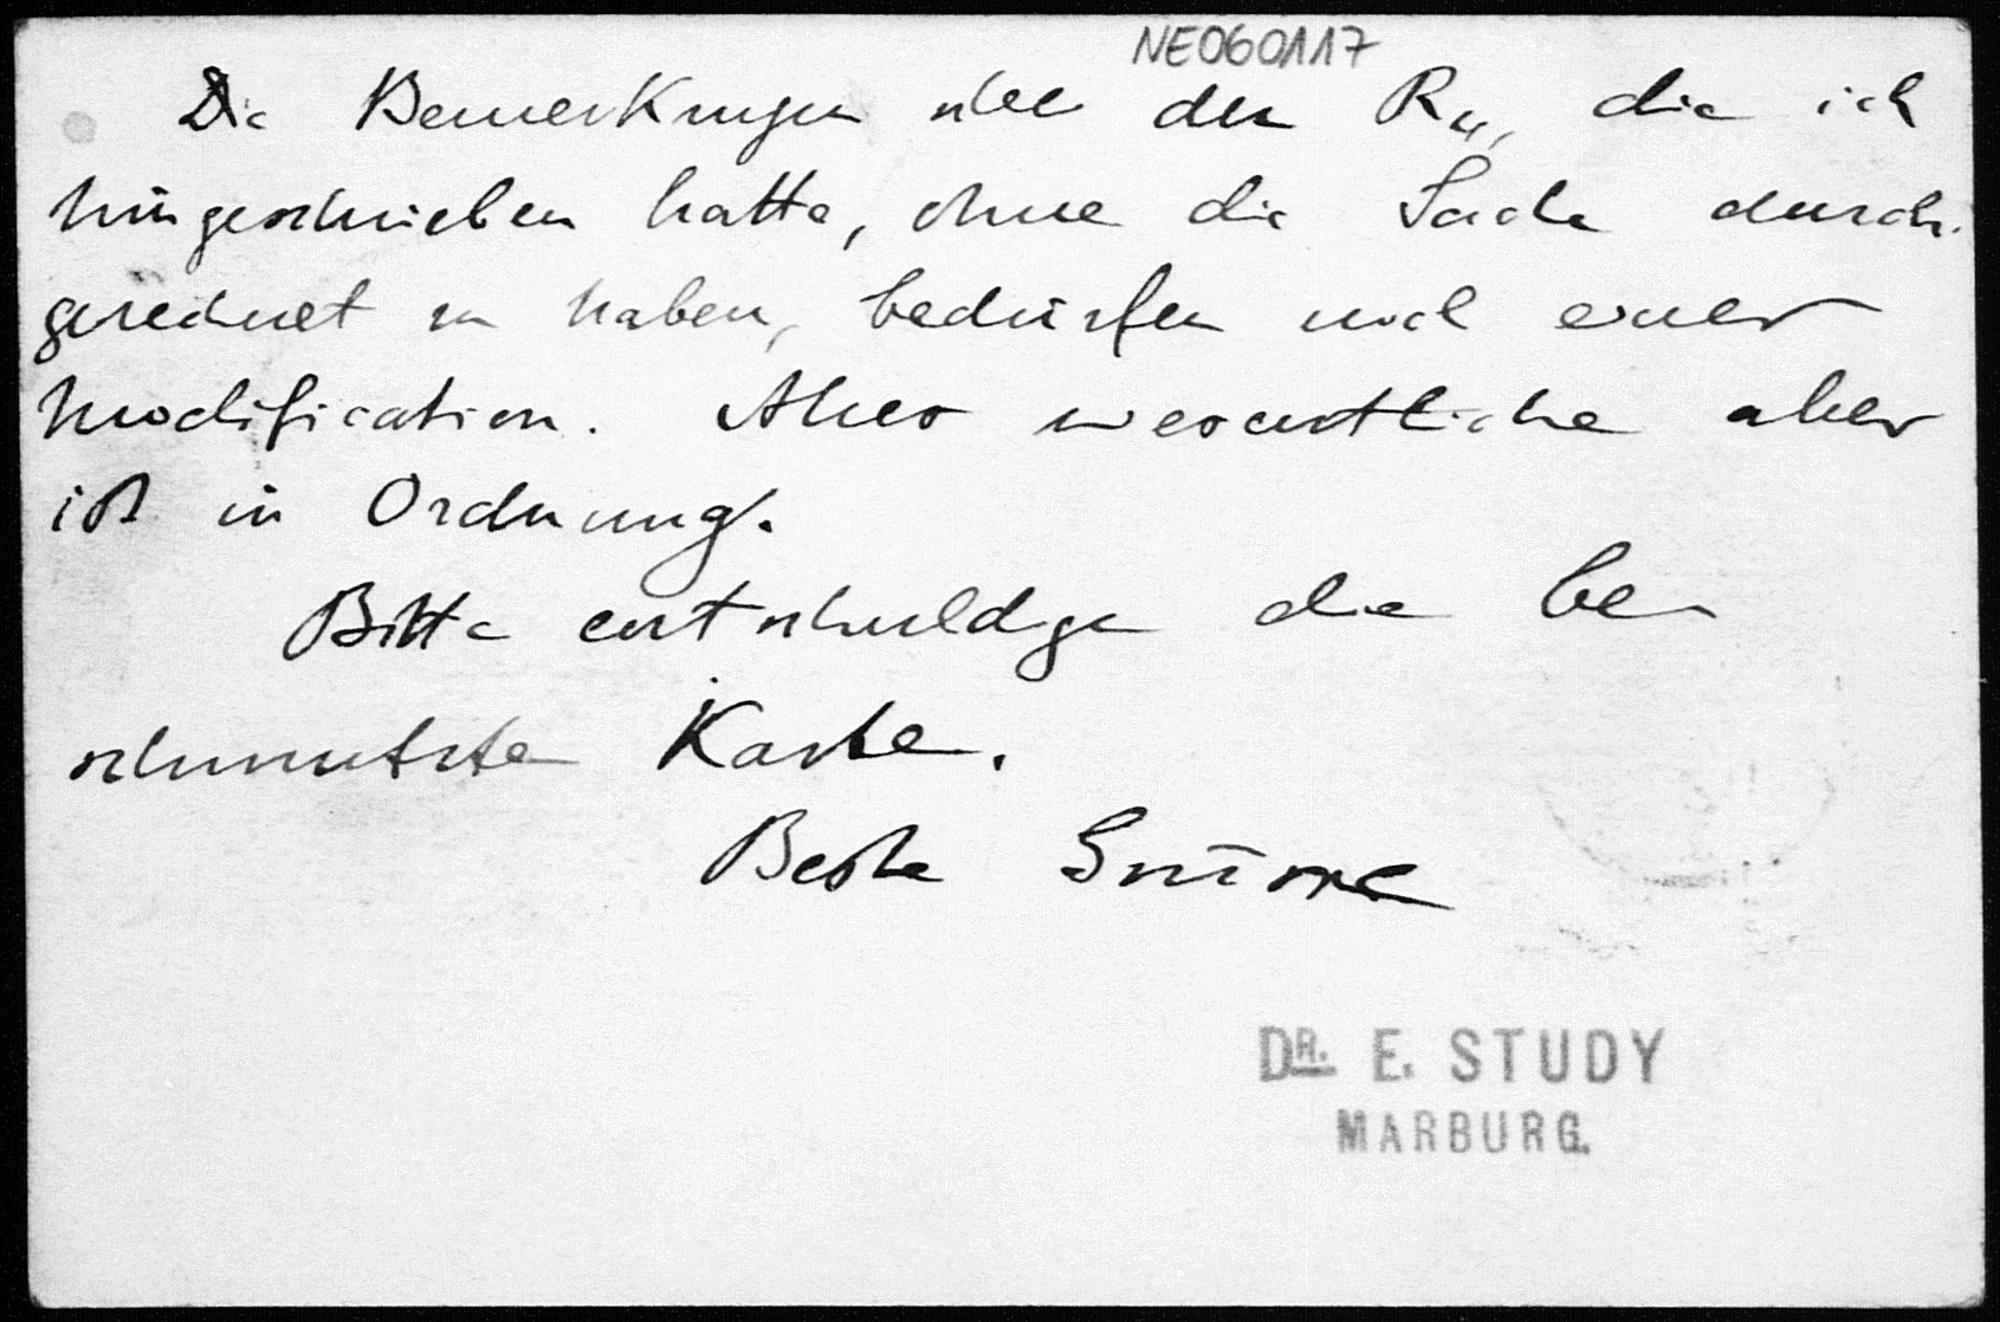 NE060117
Die Bemerkungen über den R₄, die ich
hingeschrieben hatte, ohne die Sache durch-
gerechnet zu haben, bedürfen noch einer
Modification. Alles wesentliche aber
ist in Ordnung.
Bitte entschuldgen die be
schmutzte Karte.
Beste Grüsse
DR. E. STUDY
MARBURG.